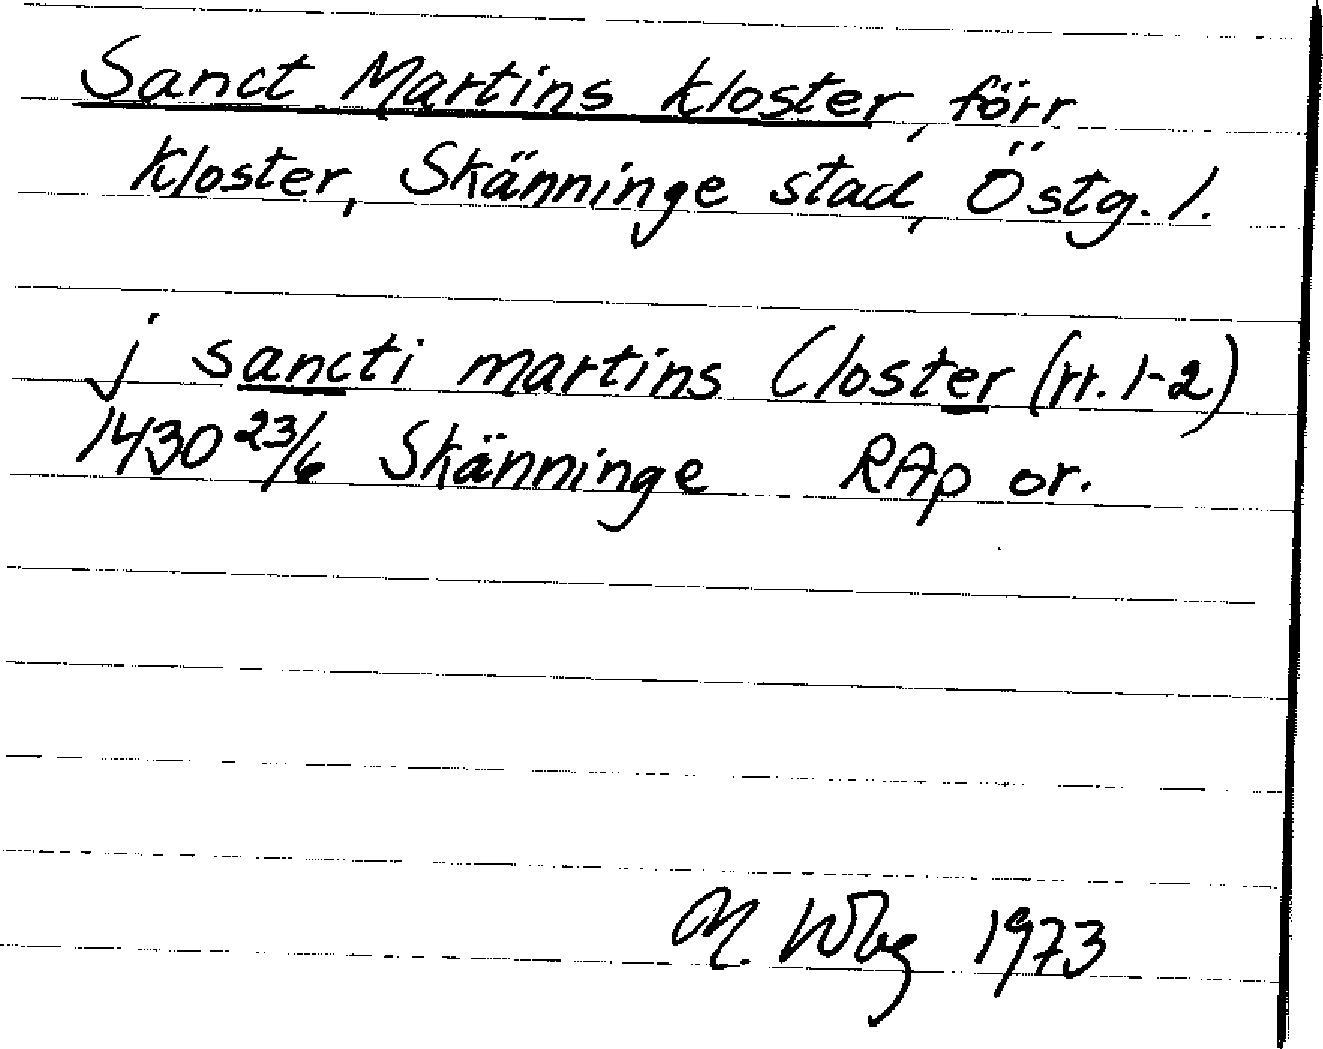 Sanct Martins kloster, förr
kloster, Skänninge stad, Östg. l.
j sancti martins Closter (rr. 1-2)
1430 23/6 Skänninge RAp or.
M. Wbg 1973